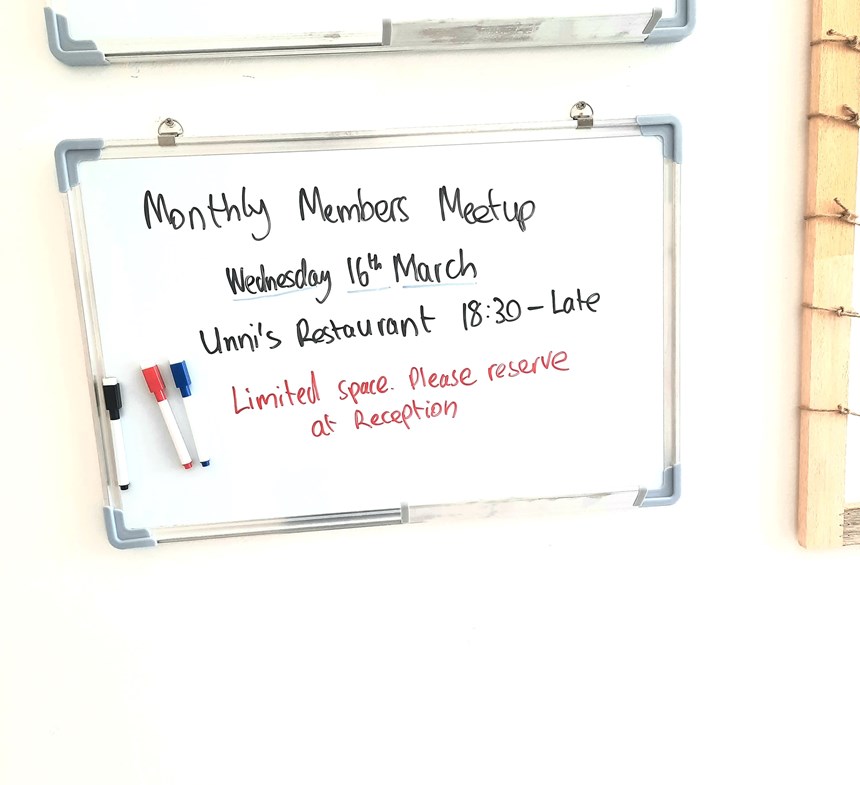 Monthly Members Meetup
Wednesday 16th March
Unni's Restaurant 18:30 – Late
Limited space. Please reserve
at Reception